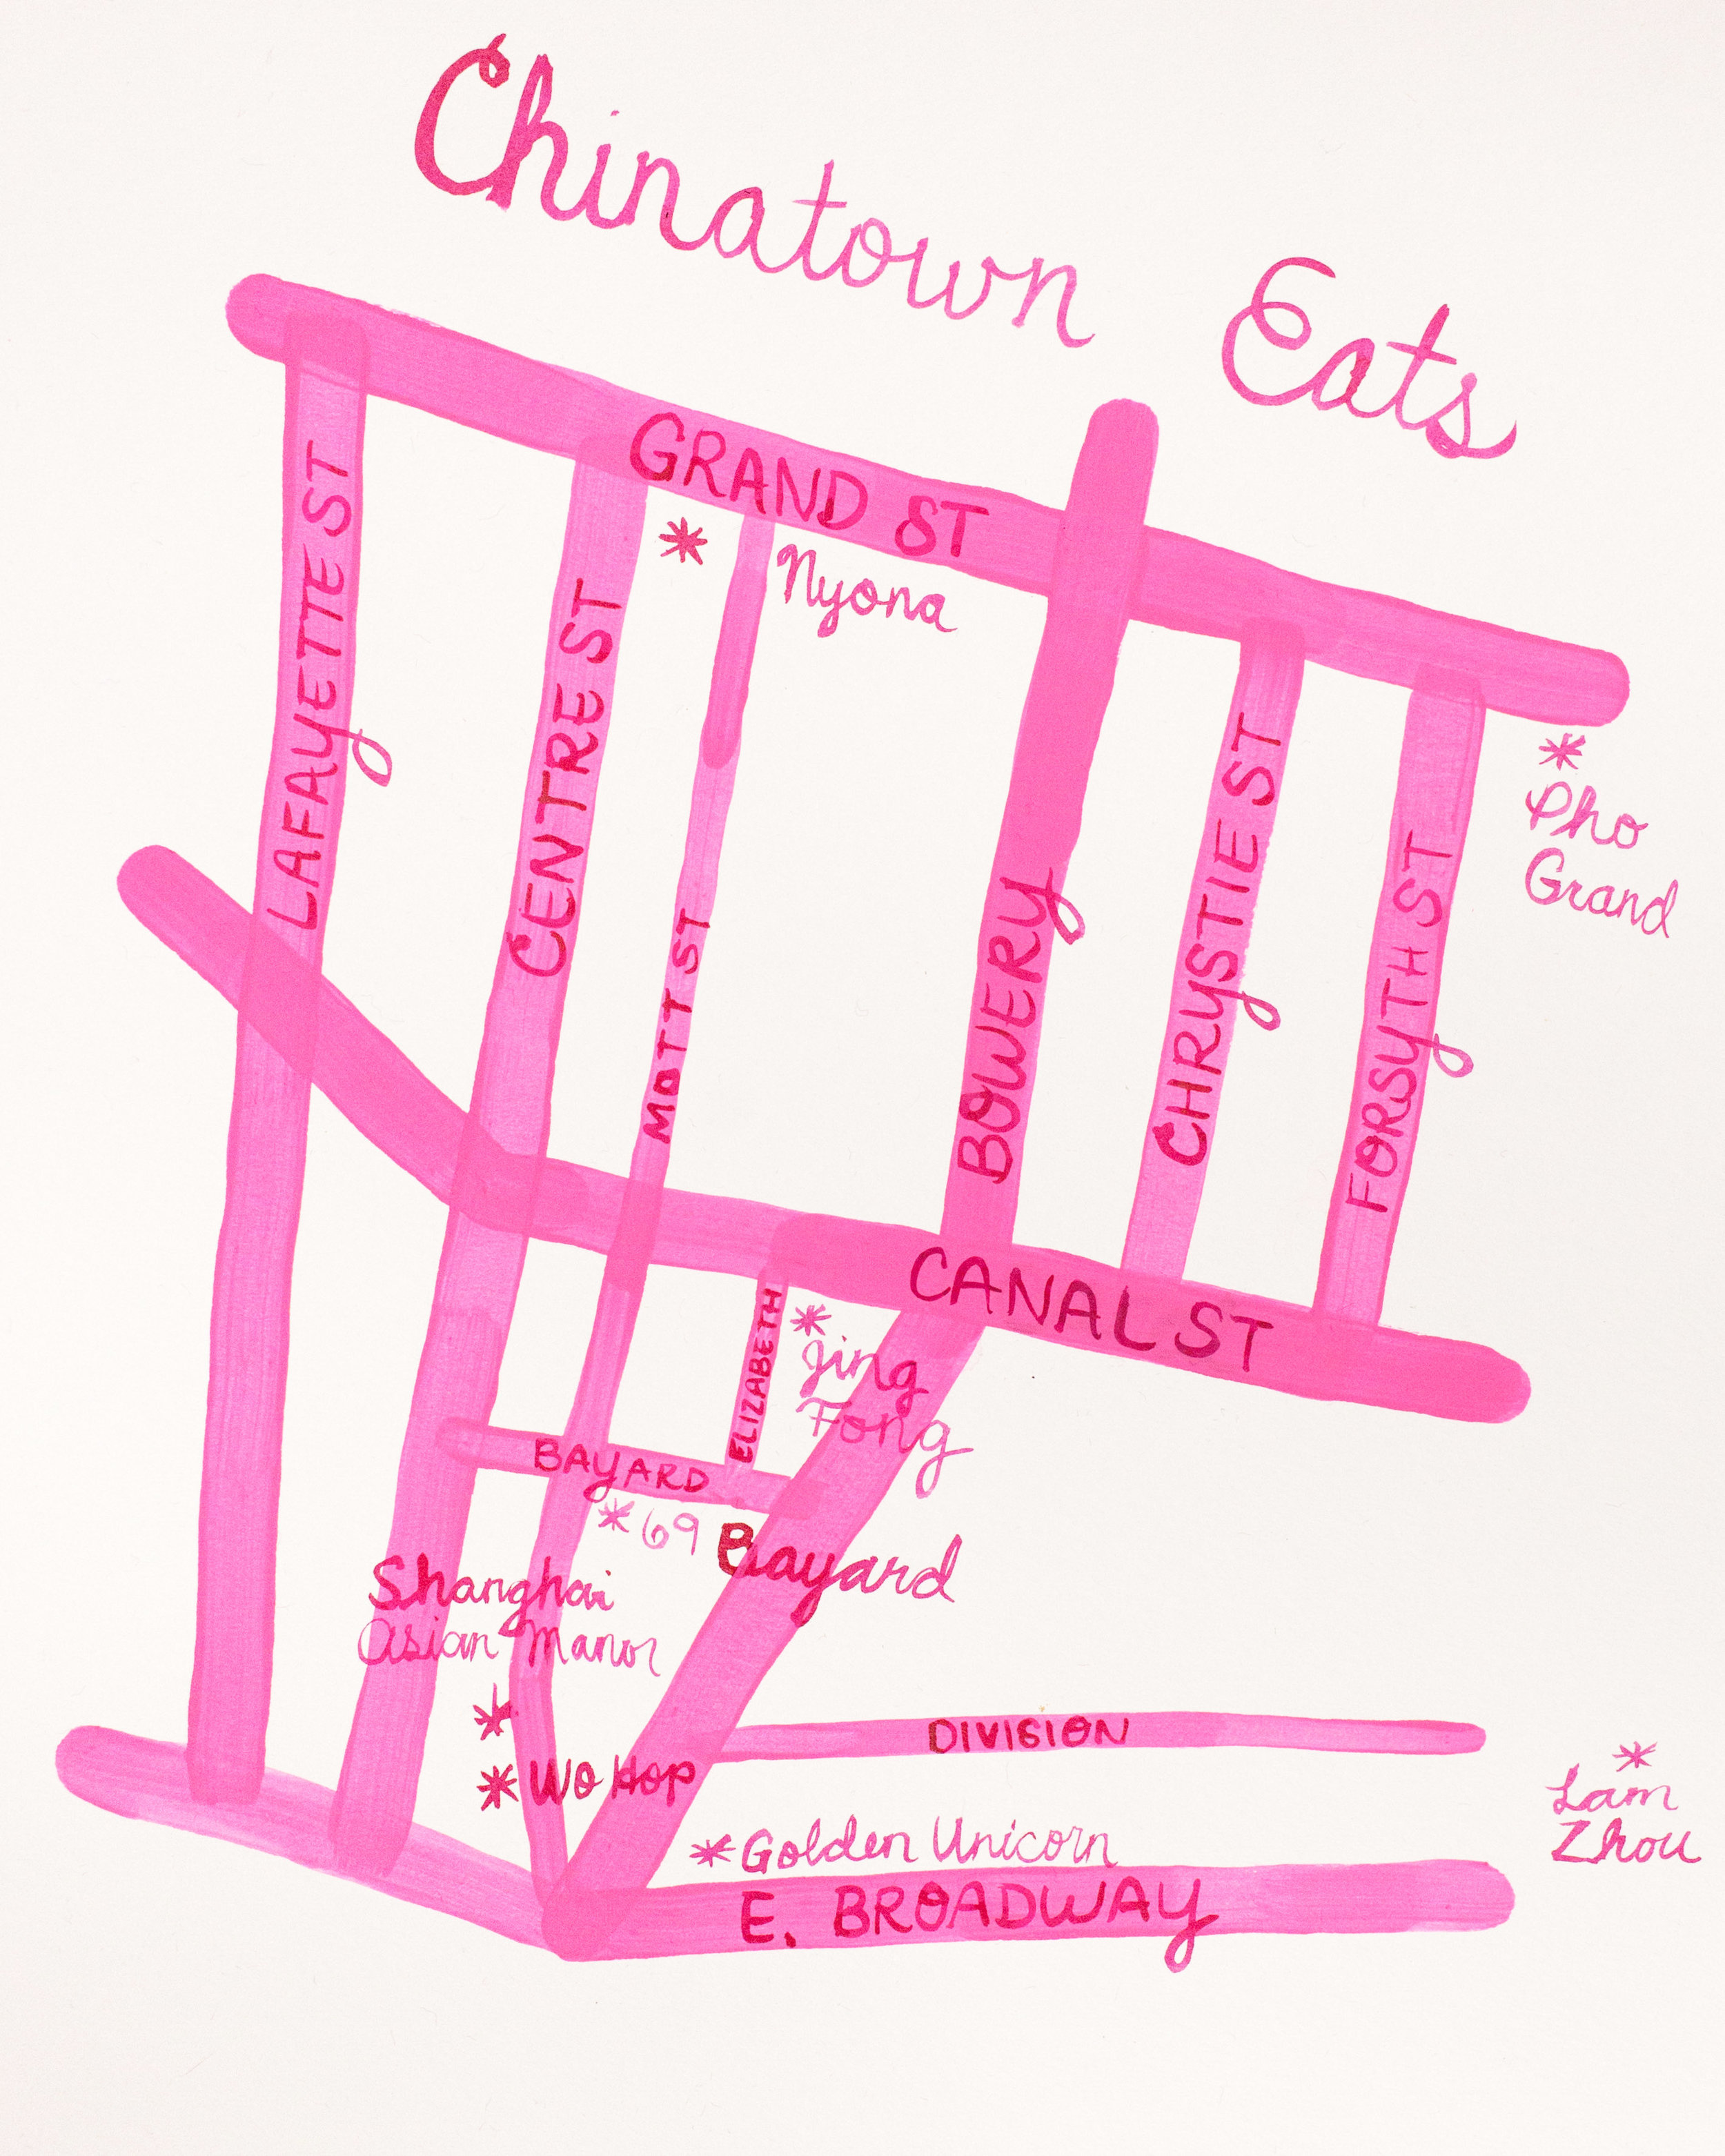 Chinatown Eats
GRAND ST
LAFAYETTE ST
CENTRE ST
Nyona
MOTT ST
BOWERY
CHRYSTIE ST
FORSYTH ST
Pho
Grand
CANAL ST
ELIZABETH
Jing
Fong
BAYARD
69 Bayard
Shanghai
Asian Manor
DIVISION
Wo Hop
Lam
Zhou
Golden Unicorn
E. BROADWAY